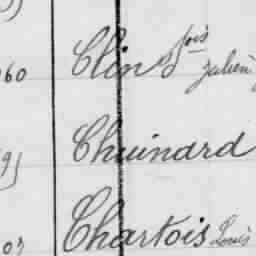 60 Clin fois Julien
9) Chuinard
07 Chartois Louis